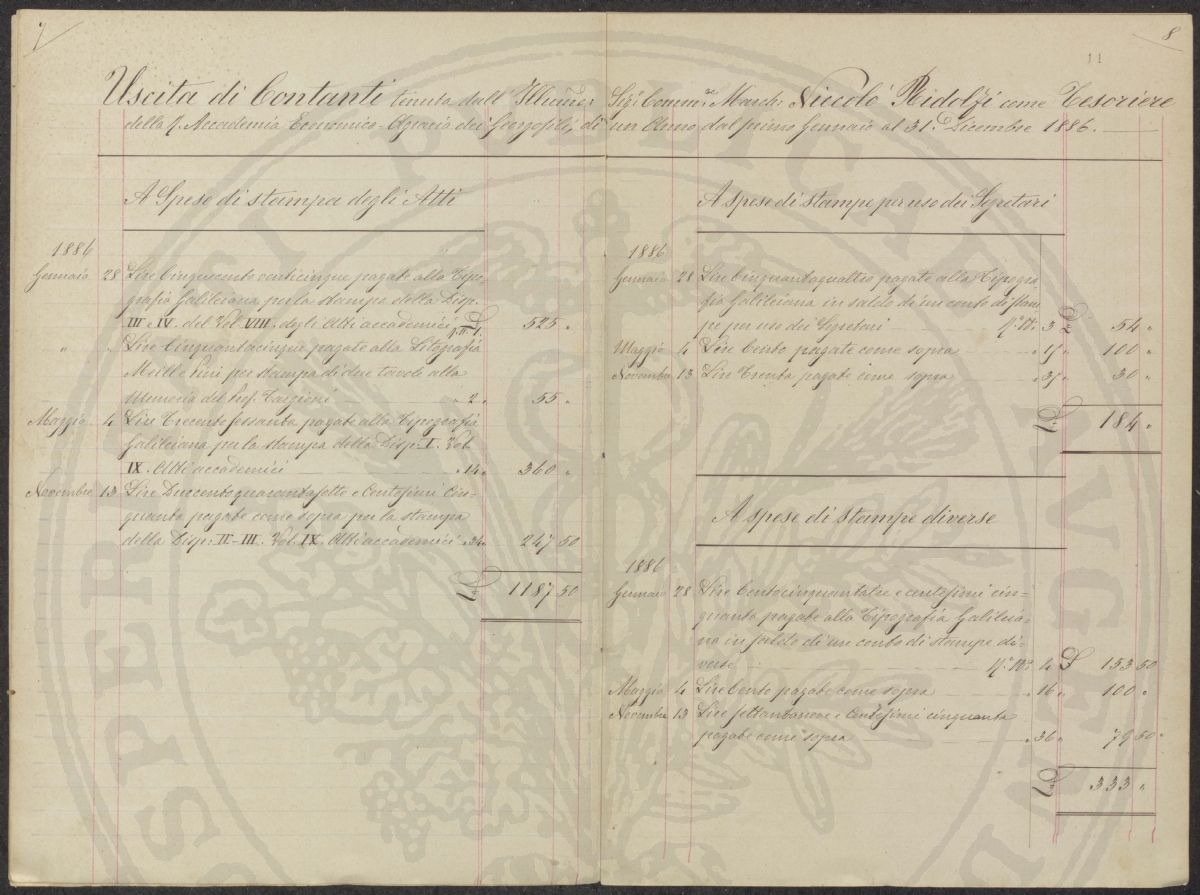 7
8
11
Uscita di Contanti tenuta dall' Illmo Sig: Comm:re March: Niccolò Ridolfi come Tesoriere
della R. Accademia Economico-Agraria dei Georgofili, di un Anno dal primo Gennaio al 31. Dicembre 1886.
A Spese di stampa degli Atti
1886
Gennaio 28 Lire Cinquecento venticinque pagate alla Tipo-
grafia Galileiana per la stampa della Disp.
III e IV. del Vol. VIII. degli Atti accademici 1. £ 525 "
" " Lire Cinquantacinque pagate alla Litografia
per stampa di due tavole alla
Memoria del Prof. Targioni " 2. 55 "
Maggio 4 Lire Trecento sessanta pagate alla Tipografia
Galileiana per la stampa della Disp. I. Vol.
IX. Atti accademici " 14 " 360 "
Novembre 13 Lire Duecentoquarantasette e Centesimi Cin-
quanta pagate come sopra per la stampa
della Disp. II-III. Vol. IX. Atti accademici " 34 " 247 50
£ 1187 50
A spese di stampe per uso dei Segretari
1886
Gennaio 28 Lire Cinquantaquattro pagate alla Tipogra-
fia Galileiana in saldo di un conto di stam-
pe per uso dei Segretari N: 3 £ 54 "
Maggio 4 Lire Cento pagate come sopra " 15 " 100 "
Novembre 13 Lire Trenta pagate come sopra " 35 " 30 "
£ 184 "
A spese di stampe diverse
1886
Gennaio 28 Lire Centocinquantatre e centesimi cin-
quanta pagate alla Tipografia Galileia-
na in saldo di un conto di stampe di-
verse N: 4 £ 153 50
Maggio 4 Lire Cento pagate come sopra " 16 " 100 "
Novembre 13 Lire settantanove e Centesimi cinquanta
pagate come sopra " 36 " 79 50
£ 333 "
PROSPERITATI PUBLICAE AUGENDAE